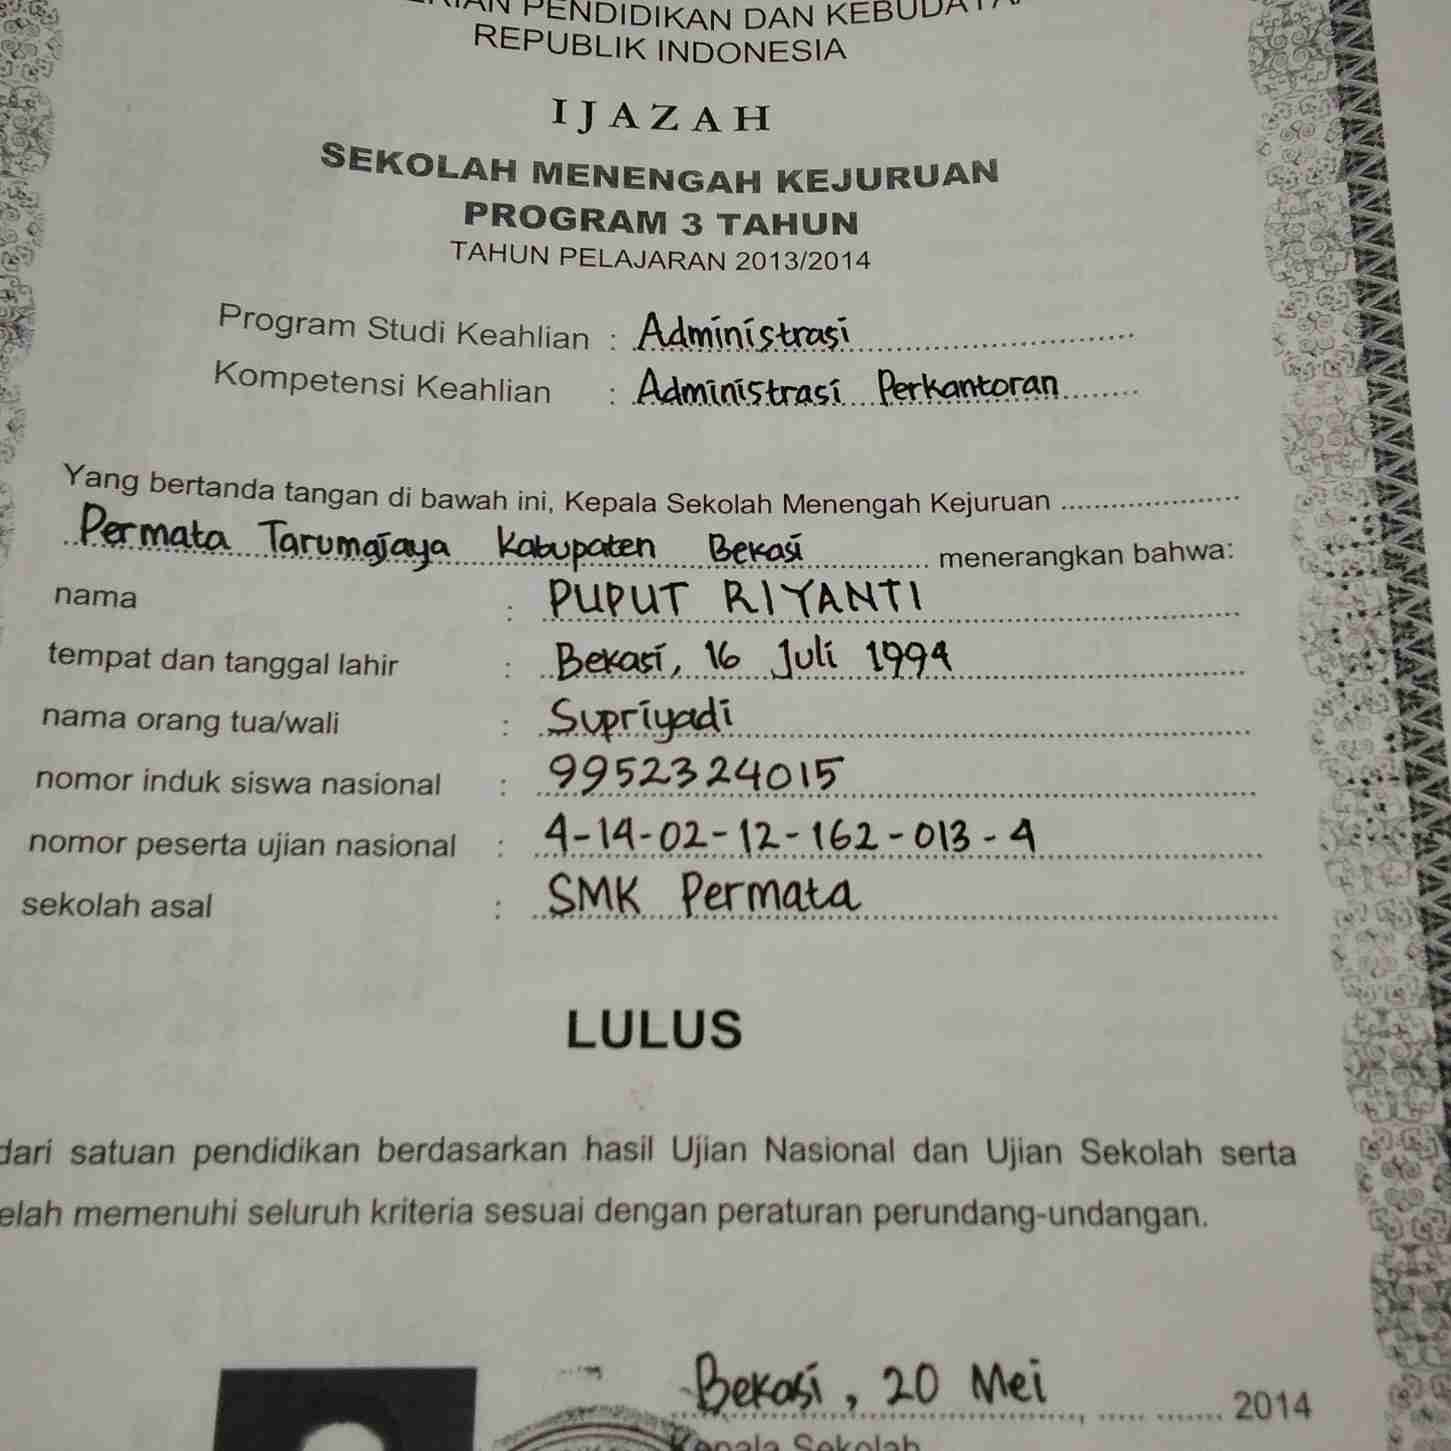 PENDIDIKAN DAN
REPUBLIK INDONESIA
IJAZAH
SEKOLAH MENENGAH KEJURUAN
PROGRAM 3 TAHUN
TAHUN PELAJARAN 2013/2014
Program Studi Keahlian : Administrasi
Kompetensi Keahlian : Administrasi Perkantoran
Yang bertanda tangan di bawah ini, Kepala Sekolah Menengah Kejuruan
Permata Tarumajaya Kabupaten Bekasi menerangkan bahwa:
nama : PUPUT RIYANTI
tempat dan tanggal lahir : Bekasi, 16 Juli 1994
nama orang tua/wali : Supriyadi
nomor induk siswa nasional : 9952324015
nomor peserta ujian nasional : 4-14-02-12-162-013-4
sekolah asal : SMK Permata
LULUS
dari satuan pendidikan berdasarkan hasil Ujian Nasional dan Ujian Sekolah serta
elah memenuhi seluruh kriteria sesuai dengan peraturan perundang-undangan.
Bekasi, 20 Mei 2014
Kepala Sekolah